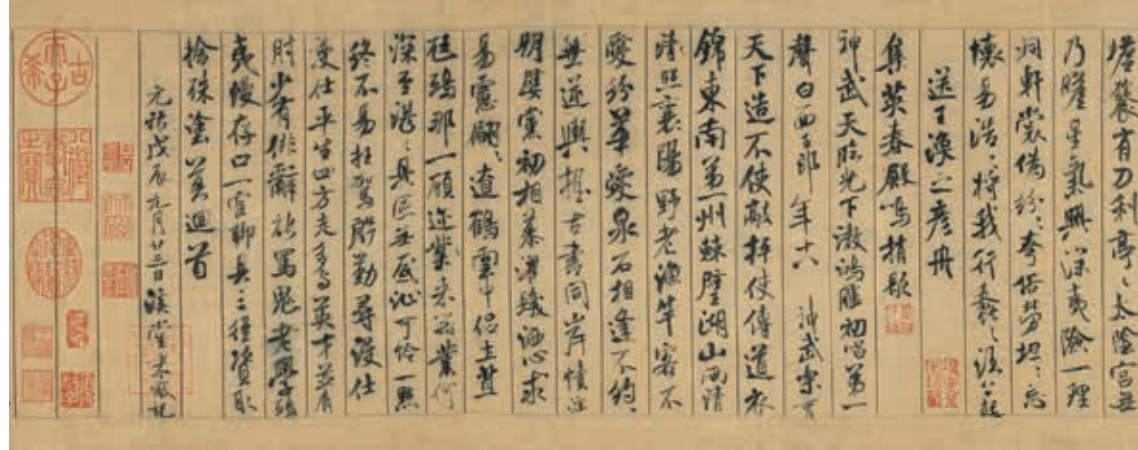 蟾餮有刀利亭〻太陰宮無
乃瞻星氣興深夷險一理
洞軒裳偽紛〻夸俗勞坦〻忘
懷易浩〻將我行蠢〻須公起
送王渙之彥舟
集英春殿鳴捎歇
神武天臨光下澈鴻臚初唱第一
聲白面玉郎年十八 神武樂育
天下造不使敲枰使傳道衣
錦東南第一州棘璧湖山兩清
照襄陽野老漁竿客不
愛紛華愛泉石相逢不約〻
無逆輿握古書同岸幘淫
朋嬖黨初相慕濯髮灑心求
易慮翩〻遼鶴雲中侶土苴
尪鴟那一顧邇來器業何
深至湛〻具區無底沚可憐一點
終不易枉駕殷勤尋漫仕
漫仕平生四方走多與英才並肩
肘少有俳辭能罵鬼老學鴟
夷漫存口一官聊具三徑資取
捨殊塗莫迴首
元祐戊辰九月廿三日溪堂米黻記
古希天子